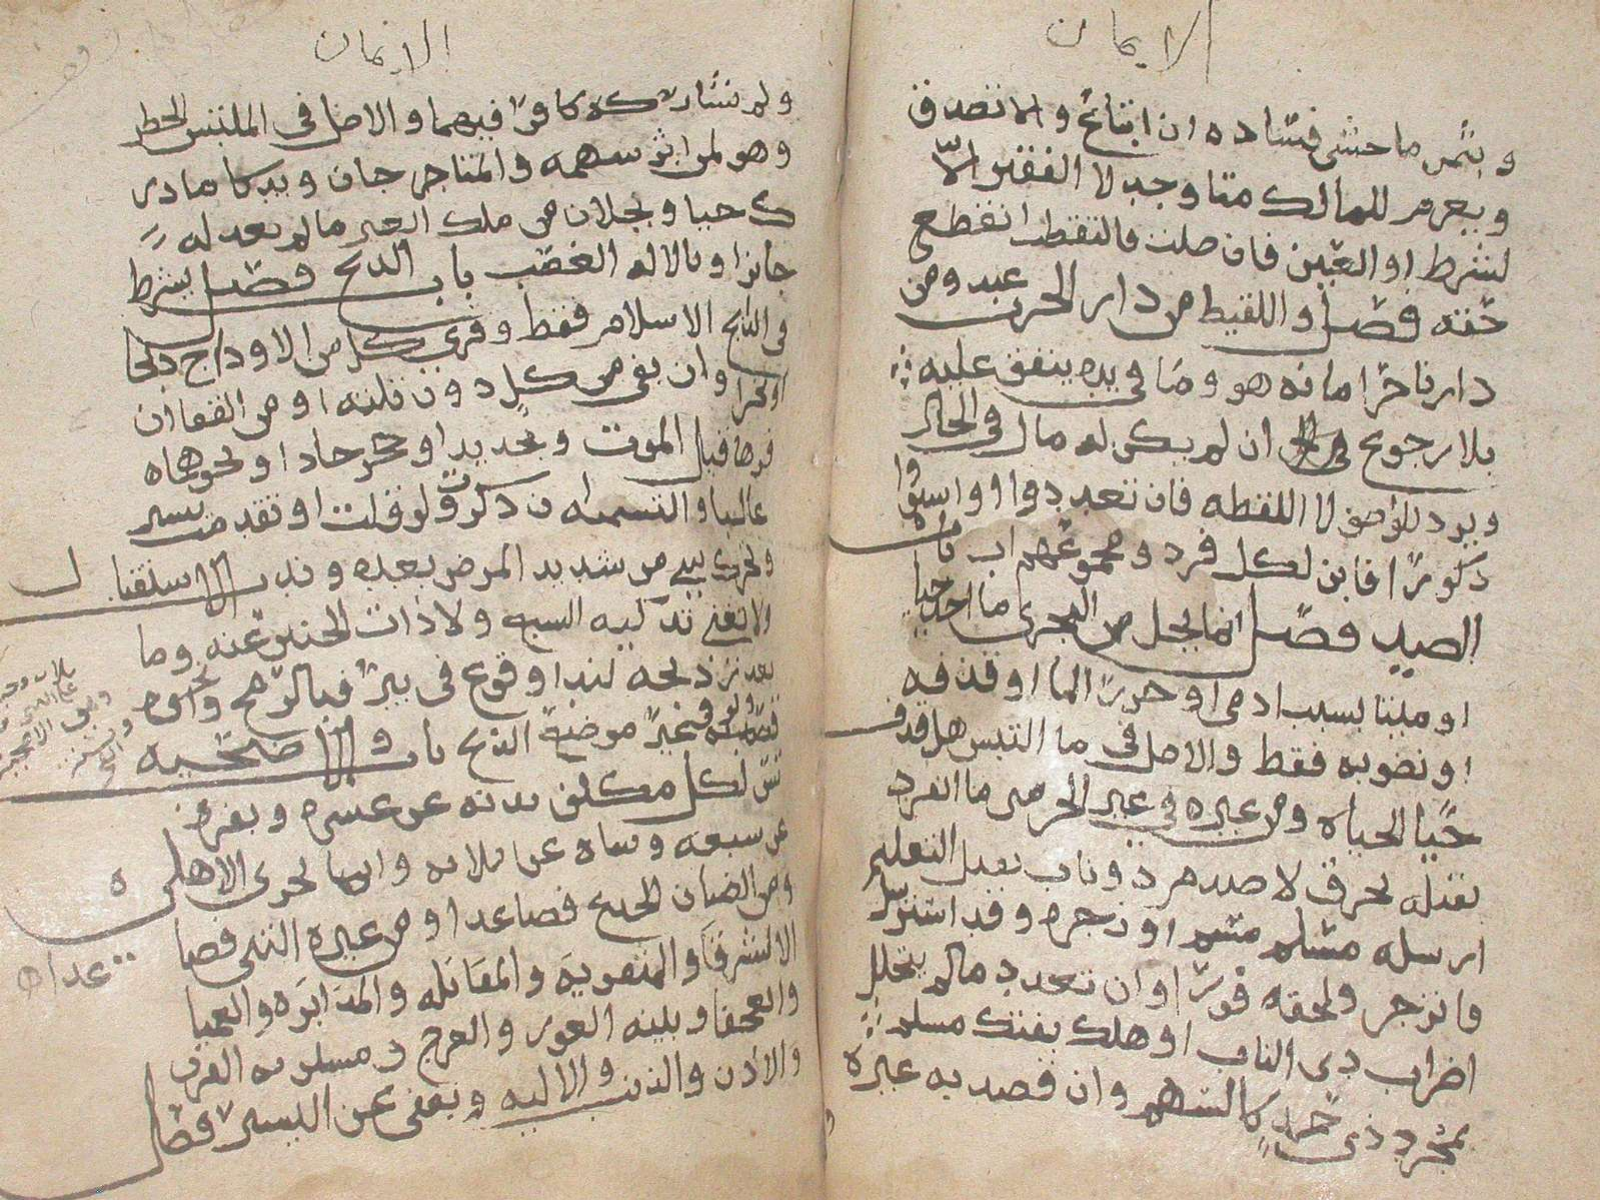 الايمان
وبثمن ما خشي فساده ان ابتاع والا تصدق
ويغرم للمالك متى وجد لا الفقير الا
لشرط او العين فان ضلت فالتقطت انقطع
حقه فصل واللقيط من دار الحرب عبد ومن
دارنا حر امانه هو وما في يده ينفق عليه
بلا رجوع ان لم يكن له مال في الحال
ويرد للواصف لا اللقطه فان تعددوا واستووا
ذكورا فابن لكل فرد ومجموعهم اب باب
الصيد فصل انما يحل من البحري ما اخذ حيا
او ميتا بسبب ادمي او جزر الما او قذفه
او نضوبه فقط والاصل في ما التبس هل قذف
حيا الحياه ومن غيره في غير الحرمين ما انفرد
بقتله بخرق لا صدم ذو ناب يقبل التعليم
ارسله مسلم مسم او زجره وقد استرسل
فانزجر ولحقه فورا وان تعدد ما لم يتخلل
اضراب ذي الناب او هلك بفتك مسلم
بمجرد ذي حد كالسهم وان قصد به غيره
الايمان
ولم يشاركه كافر فيهما والاصل في الملتبس الحظر
وهو لمن اثر سهمه والمتاخر جان ويذكا ما در
ك حيا ويحلان من ملك الغير ما لم يعد له
حايزا وبالاله الغصب باب الذبح فصل يشرط
في الذابح الاسلام فقط وفري كل من الاوداج ذبحا
او نحرا وان بقي من كل دون ثلثه او من القفا ان
فراها قبل الموت وبحديد او حجر حاد او نحوهما
غالبا والتسميه ان ذكرت ولو قلت او تقدمت بيسير
وتحرك شي من شديد المرض بعده وندب الاستقبال
ولا تغني تذكيه السبع ولا ذات الجنين عنه وما
تعذر ذبحه لند او وقوع في بير فبالرمح ونحوه
ولو في غير موضع الذبح باب والاضحيه
تسن لكل مكلف بدنه عن عشره وبقره
عن سبعه وشاه عن ثلاثه وانما يجزي الاهلي
ومن الضان الجذع فصاعدا ومن غيره الثني فصا
عدا
الا الشرقا والمثقوبه والمقابله والمدابره والعميا
والعجفا وبينه العور والعرج ومسلوبه القرن
والاذن والذنب والاليه ويعفى عن اليسير فصل